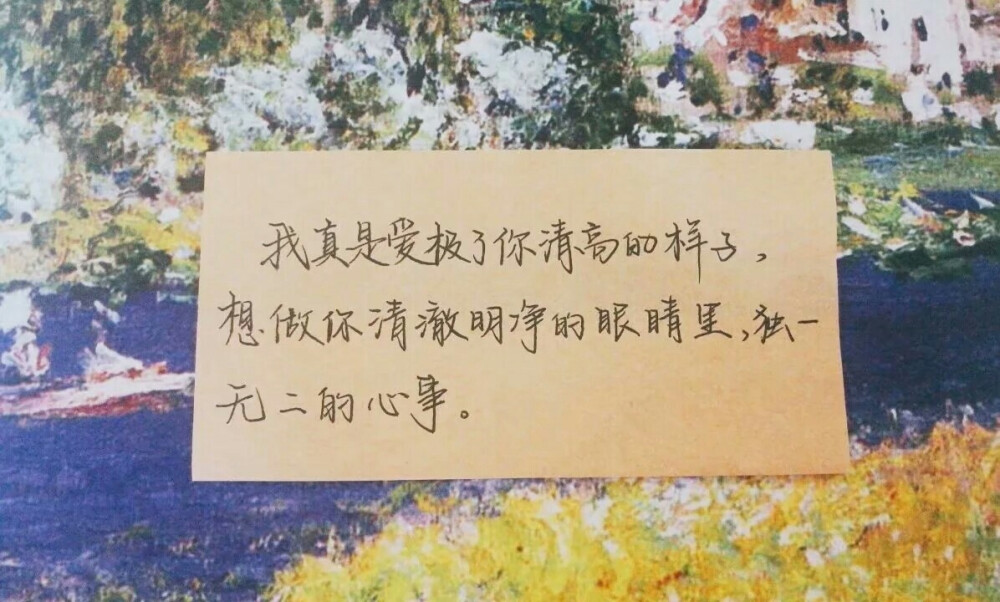 我真是爱极了你清高的样子，
想做你清澈明净的眼睛里，独一
无二的心事。